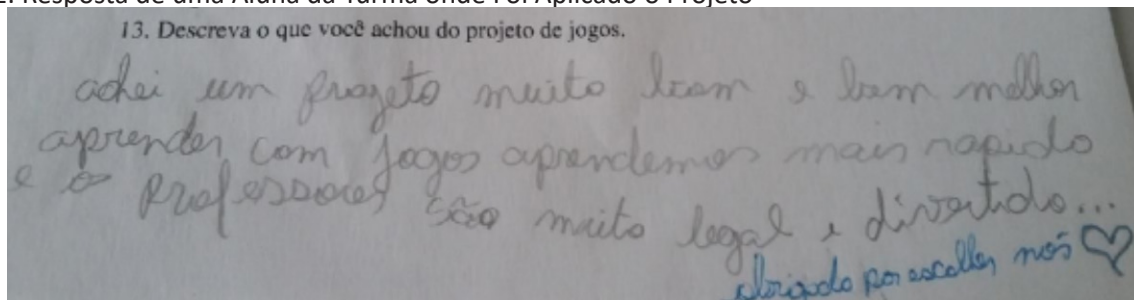 2. Resposta de uma Aluna da Turma onde Foi Aplicado o Projeto
13. Descreva o que você achou do projeto de jogos.
achei um progeto muito bom e bem melhor
aprender com jogos aprendemos mais rapido
e o professores são muito legal e divertido...
obrigado por escolher nós ♡